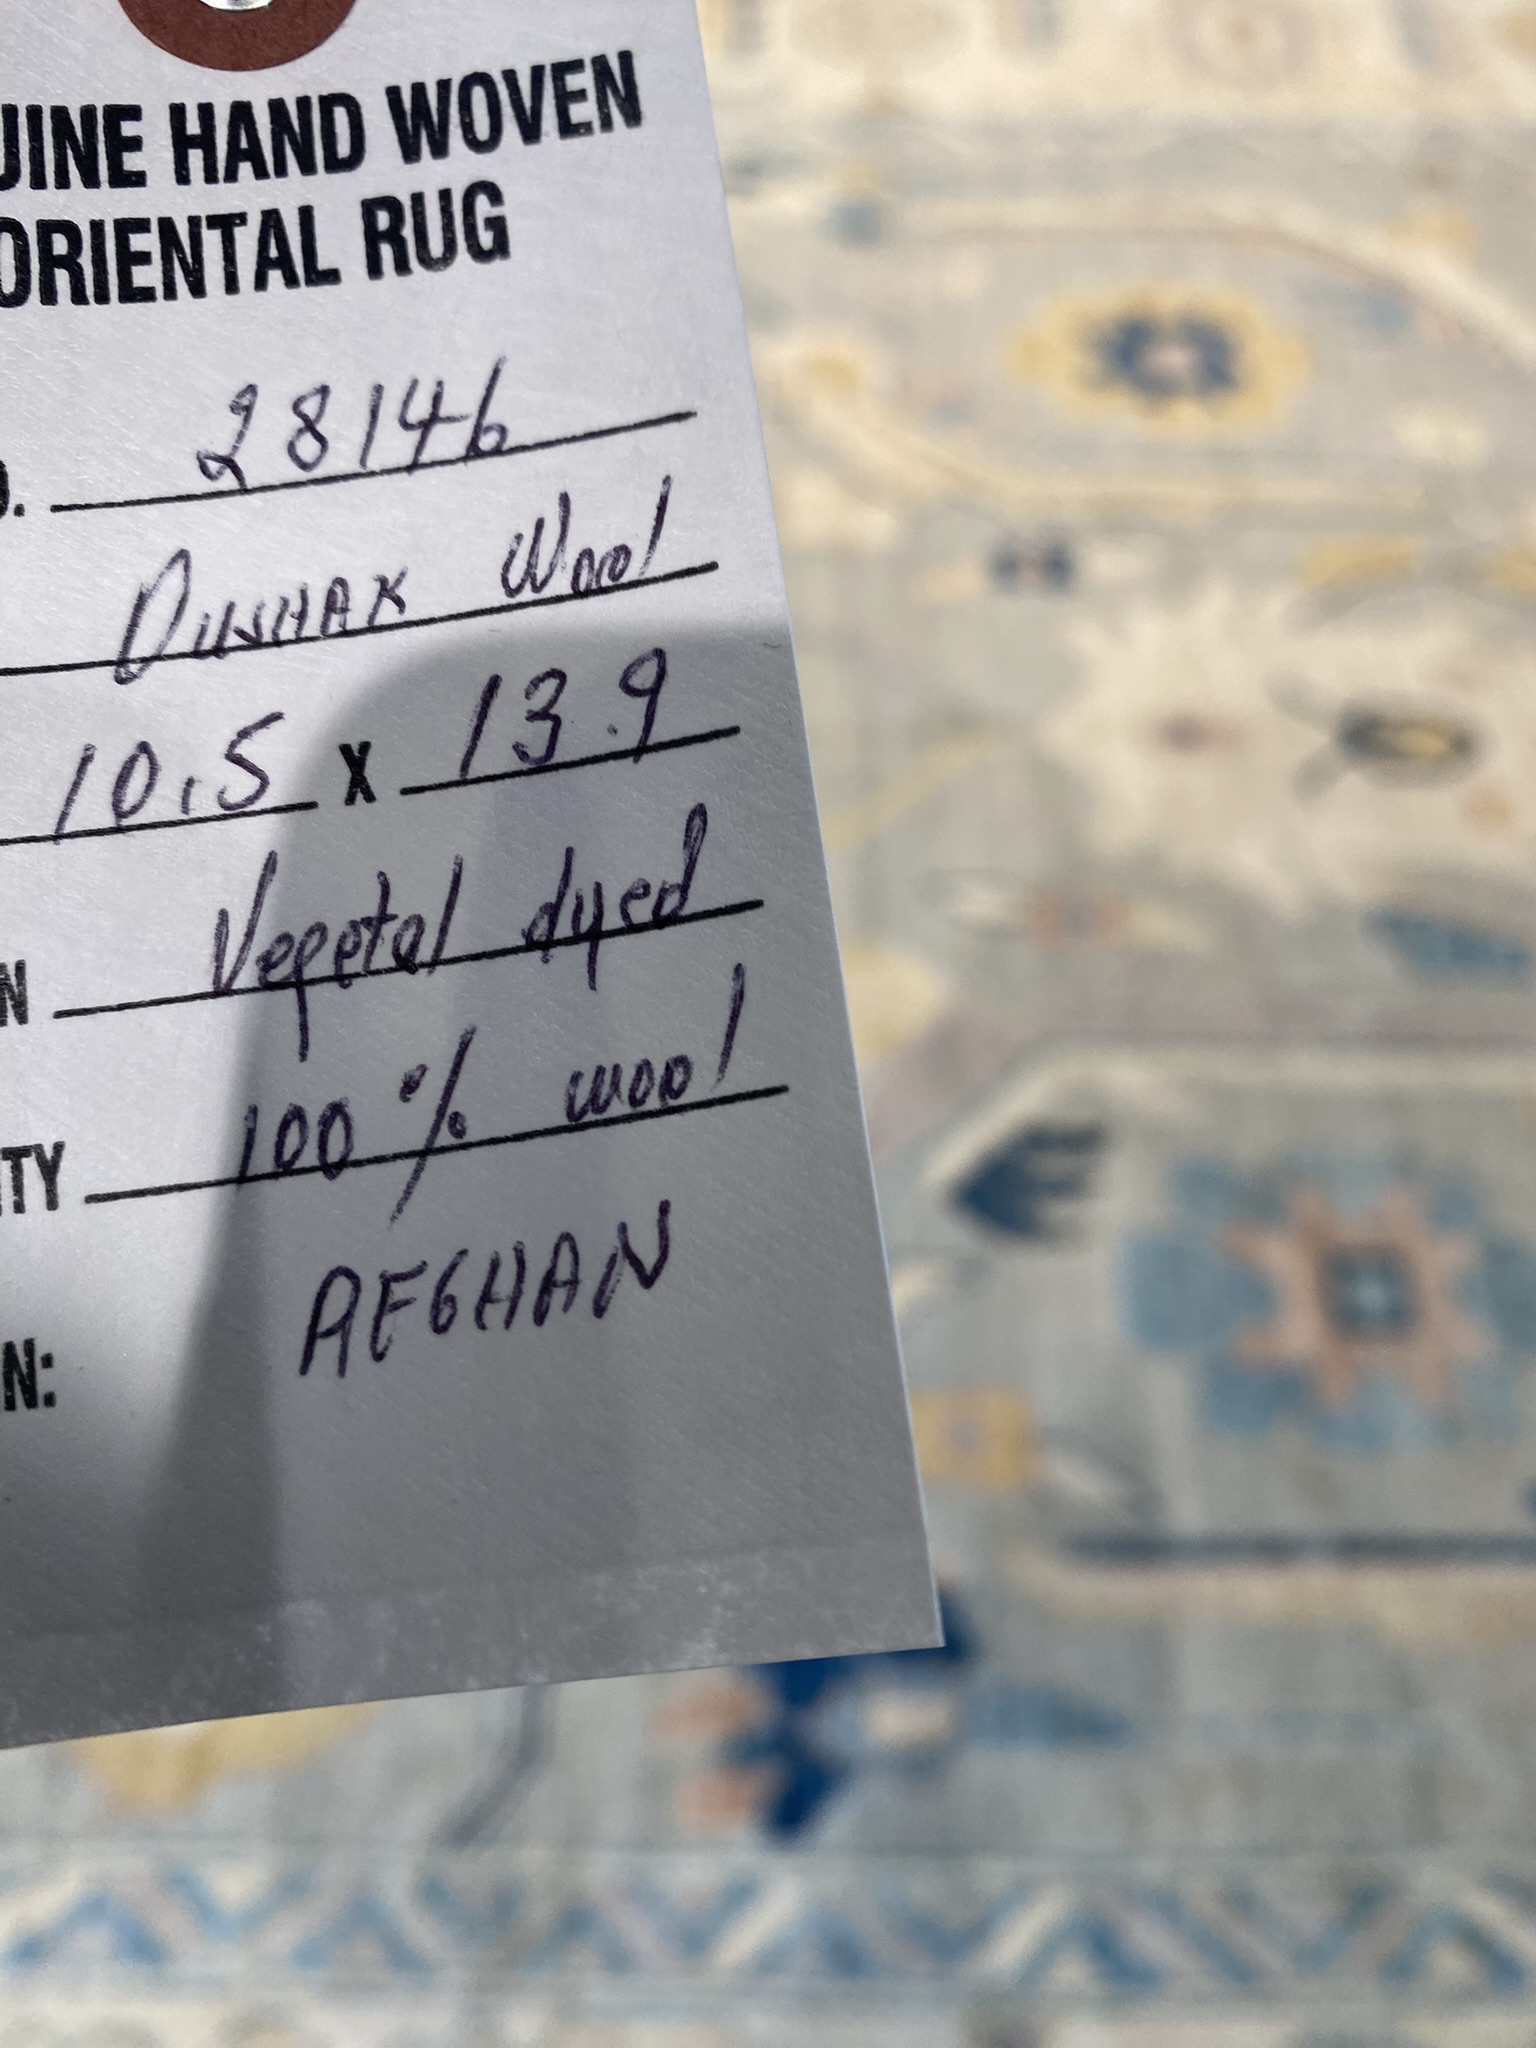 UINE HAND WOVEN
ORIENTAL RUG
. 28146
DUSHAK Wool
10.5 X 13.9
N Vegetal dyed
ITY 100% wool
N: AFGHAN